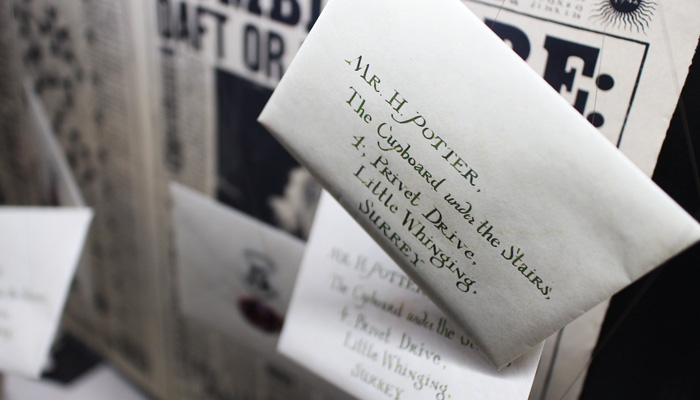 DAFT OR
RE:
MR. H. POTTER,
The Cupboard under the Stairs,
4, Privet Drive,
Little Whinging,
SURREY
MR. H. POTTER,
The Cupboard under the
4, Privet Drive,
Little Whinging,
SURREY